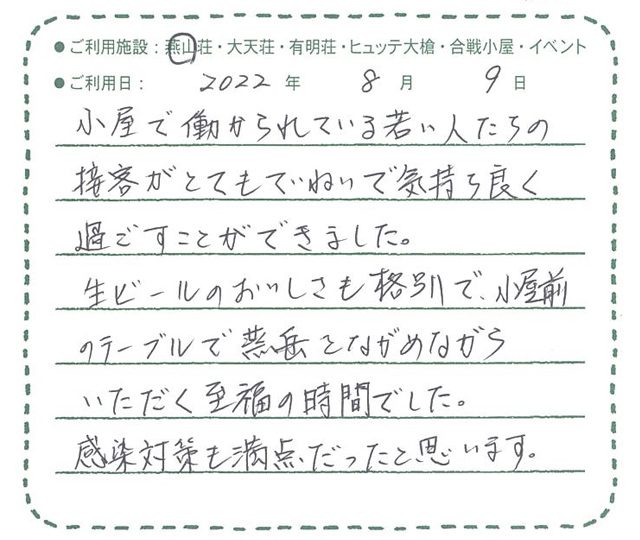 ●ご利用施設：燕山荘・大天荘・有明荘・ヒュッテ大槍・合戦小屋・イベント
●ご利用日： 2022 年 8 月 9 日
小屋で働かられている若い人たちの
接客がとてもていねいで気持ち良く
過ごすことができました。
生ビールのおいしさも格別で、小屋前
のテーブルで燕岳をながめながら
いただく至福の時間でした。
感染対策も満点だったと思います。